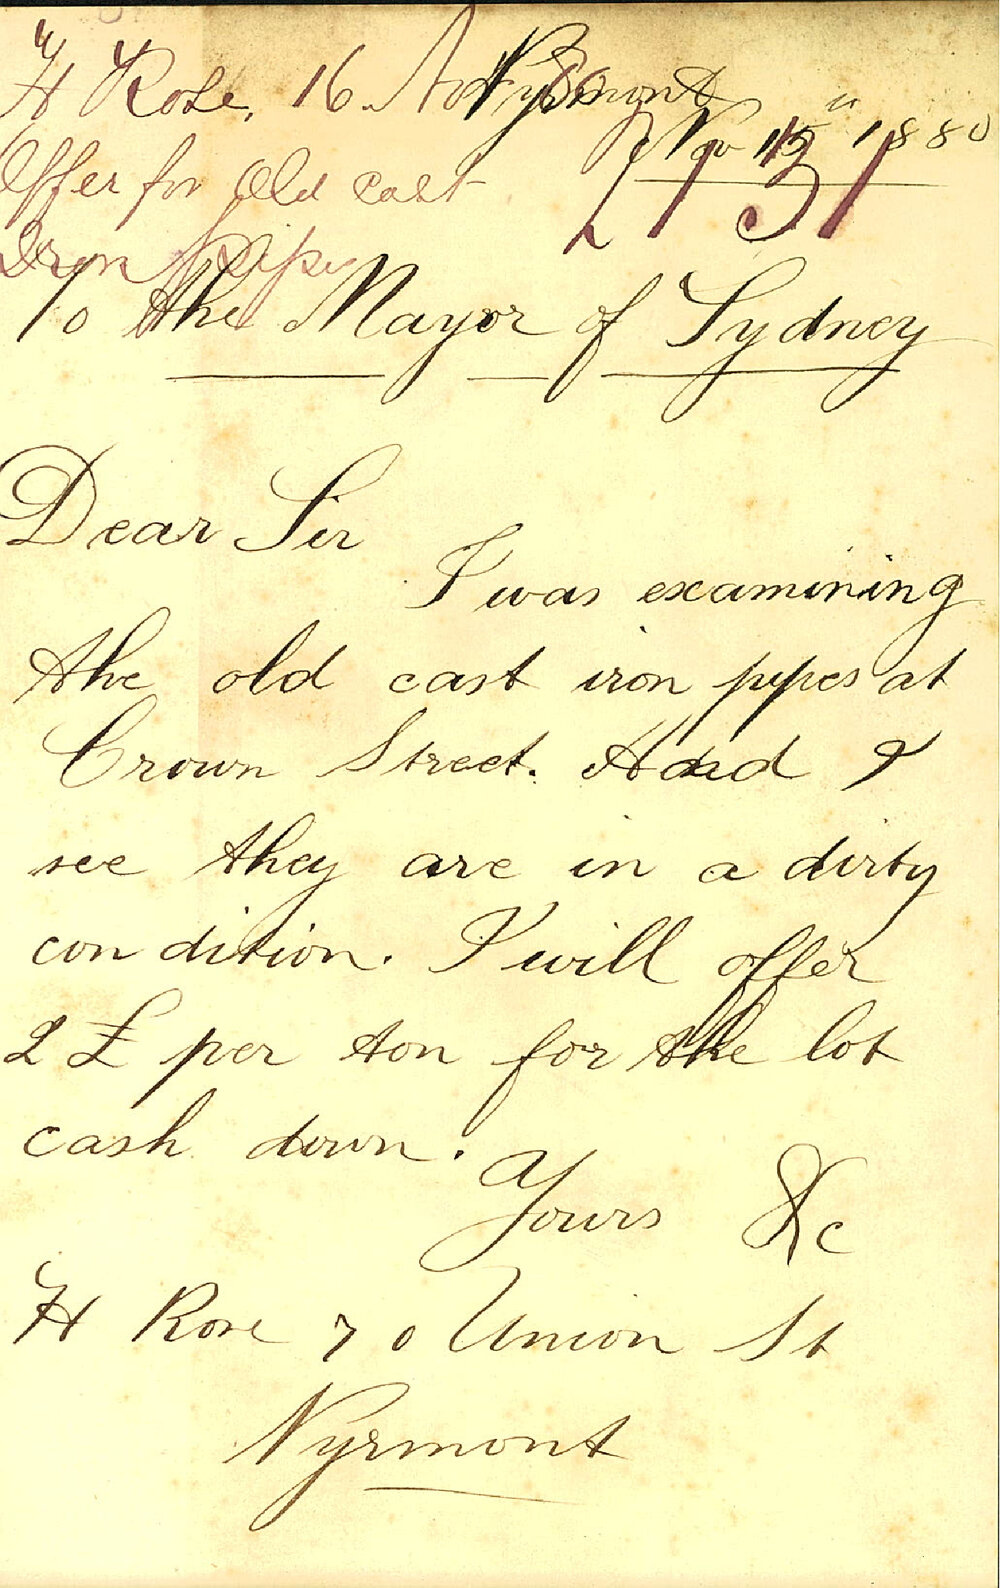 H Rose, 16 Nov 80
Pyrmont
Offer for Old cast
Iron Pipes
Nov 15" 1880
2131
To the Mayor of Sydney
Dear Sir
I was examining
the old cast iron pipes at
Crown Street. And I
see they are in a dirty
condition. I will offer
2 £ per ton for the lot
cash down.
Yours &c
H Rose 70 Union St
Pyrmont